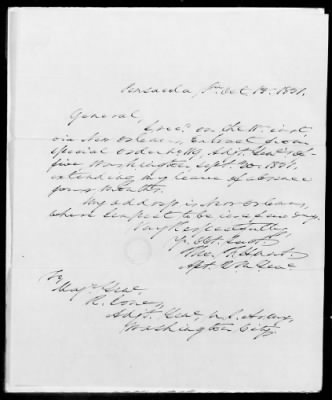 Pensacola, Fa. Oct. 12. 1851.
General,
I rec'd on the 11th inst.
via New Orleans, Extract from
Special order No. Adjt. Genl's Of-
fice Washington, Sept. 20. 1851,
extending my leave of absence
four months.
My address is New Orleans,
where I expect to be in a few days.
Very Respectfully,
Yr. Obt. Servt.
To
Maj. Genl.
R. Jones,
Adjt. Genl. U.S. Army,
Washington City.